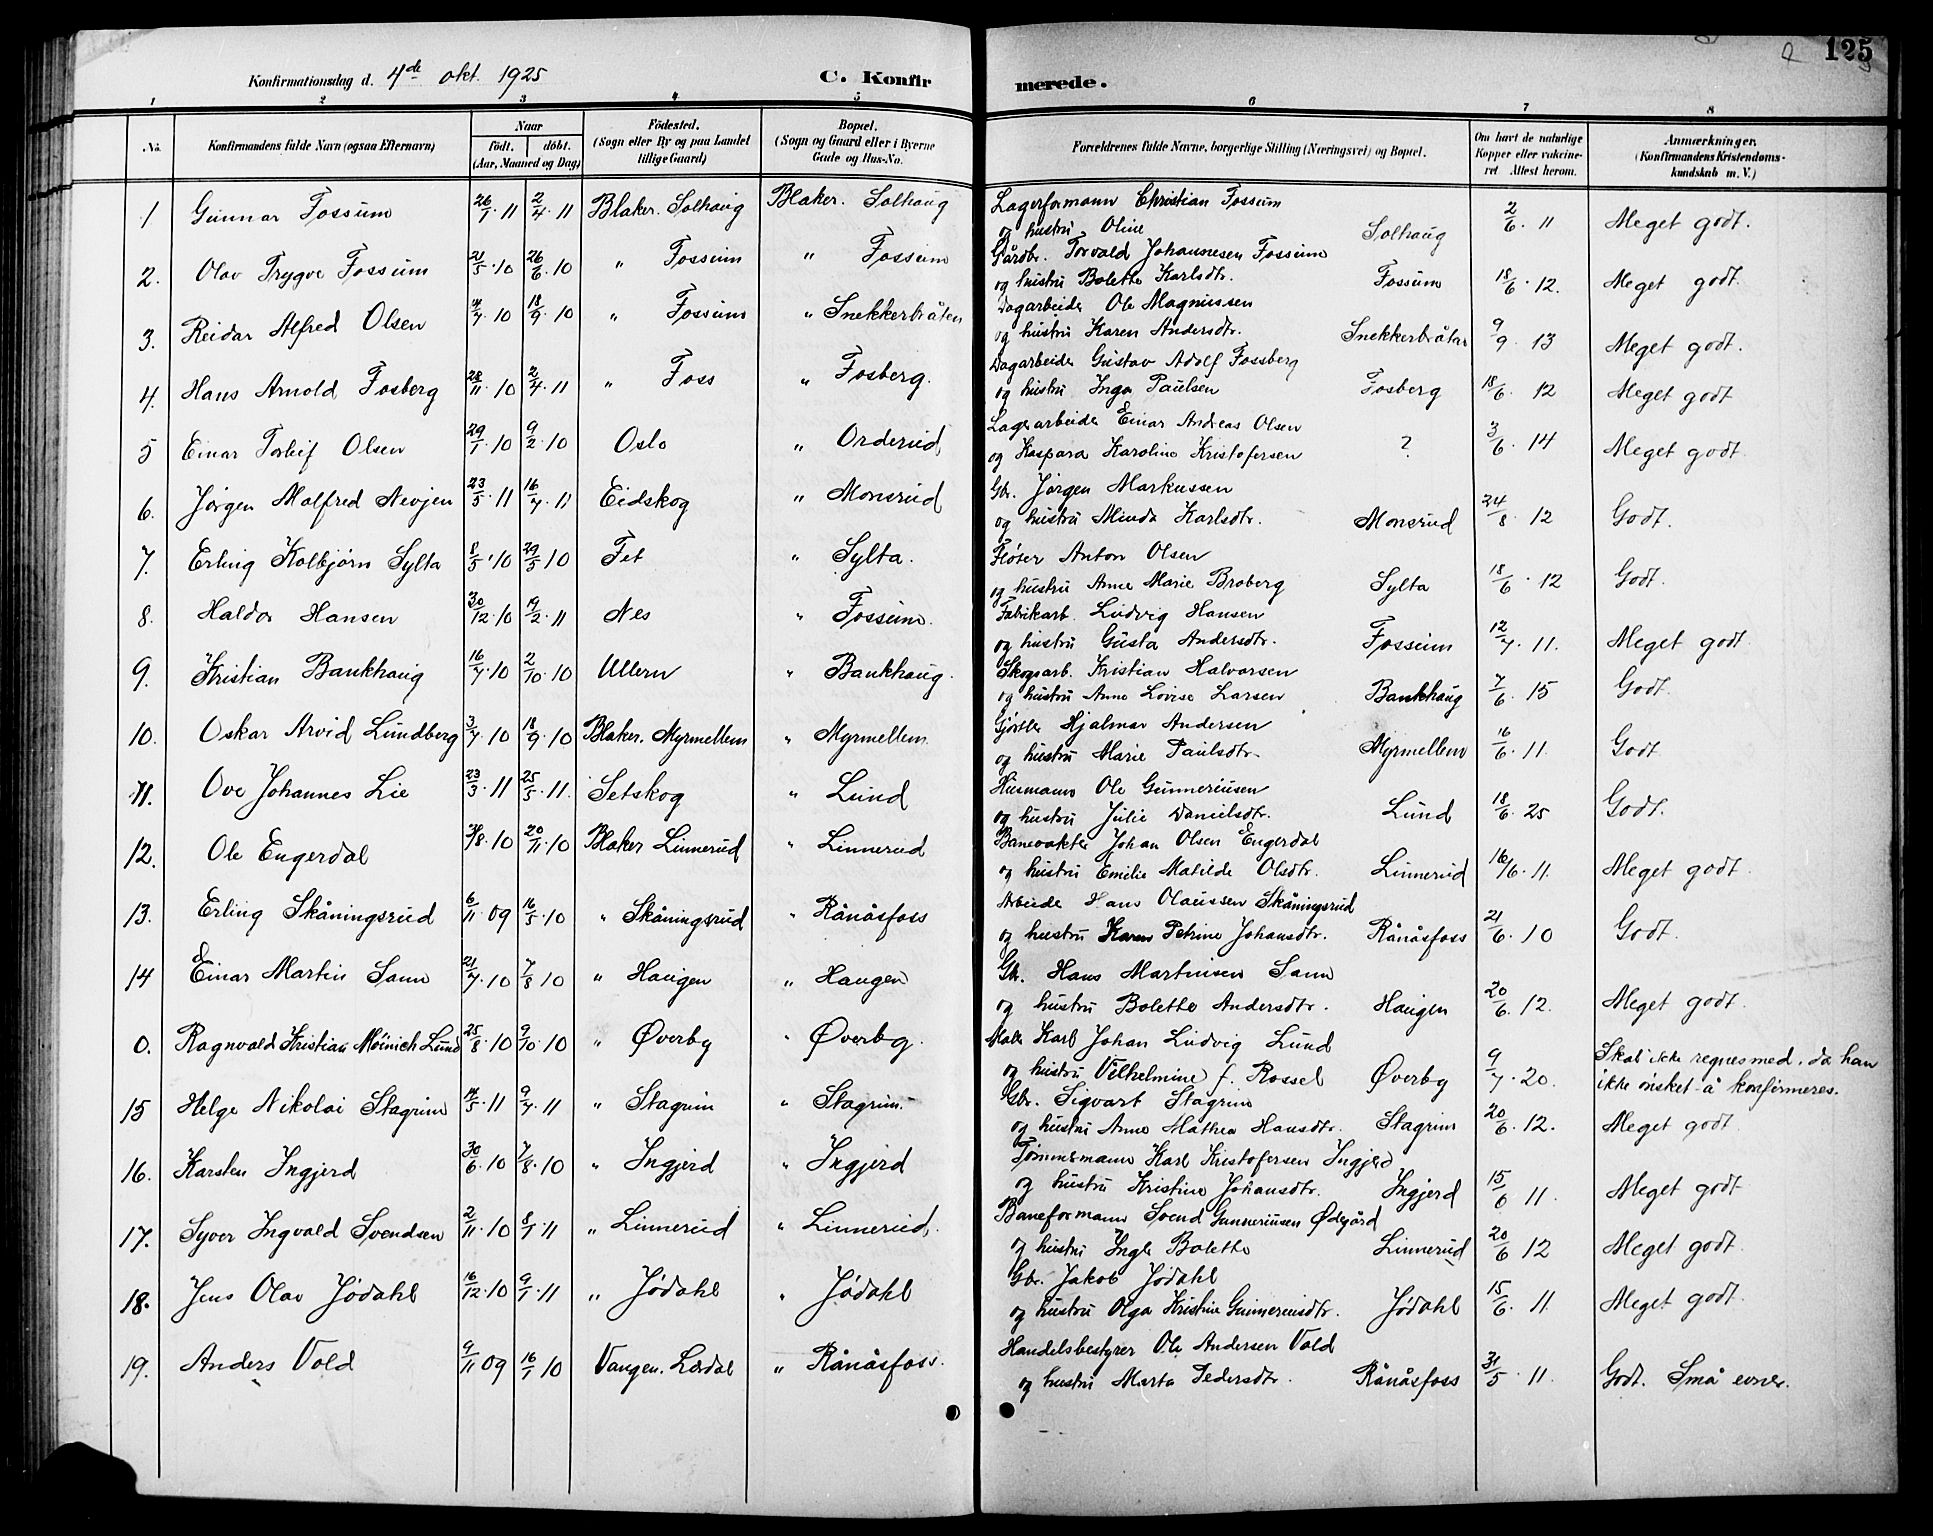 125
Konfirmationsdag d. 4de okt. 1925 C. Konfirmerede.
1 2 3 4 5 6 7 8
No. Konfirmandens fulde Navn (ogsaa Efternavn) Naar født. døbt. (Aar, Maaned og Dag) Födested. (Sogn eller By og paa Landet tillige Gaard) Bopæl. (Sogn og Gaard eller i Byerne Gade og Hus-No. Forældrenes fulde Navne, borgerlige Stilling (Næringsvei) og Bopæl. Om havt de naturlige Kopper eller vaccineret Attest herom. Anmærkninger. (Konfirmandens Kristendomskundskab m. V.)
1 Gunnar Fossum 26/1.11 2/4.11 Blaker. Solhaug Blaker. Solhaug Lagerformann Christian Fossum
og hustru Oline Solhaug 2/6.11 Meget godt.
2. Olav Trygve Fossum 21/5.10 26/6.10 " Fossum " Fossum Gårdbr. Torvald Johannesen Fossum
og hustru Bolette Karlsdtr. Fossum 18/6.12. Meget godt.
3. Reidar Alfred Olsen 4/7.10 18/9.10 " Fossum " Snekkerbråten Dagarbeider Ole Magnussen
og hustru Karen Andersdtr. Snekkerbråten 9/9.13 Meget godt.
4. Hans Arnold Fosberg 28/11.10 2/4.11 " Foss " Fosberg. Dagarbeider Gustav Adolf Fossberg
og hustru Inga Paulsen Fosberg 18/6.12 Meget godt
5 Einar Torleif Olsen 29/1.10 9/2.10 Oslo " Orderud Lagerarbeider Einar Andreas Olsen
og Kaspara Karoline Kristofersen ? 3/6.14 Meget godt
6. Jørgen Malfred Nevjen 23/5.11 16/7.11 Eidskog " Monsrud Gbr. Jørgen Markussen
og hustru Minda Karlsdtr. Monsrud 24/8.12 Godt.
7. Erling Kolbjørn Sylta 8/5.10 29/5 10 Fet " Sylta. Fløter Anton Olsen
og hustru Anne Marie Broberg Sylta 18/6.12 Godt.
8. Haldor Hansen 30/12.10 19/2.11 Nes " Fossum. Fabrikarb. Ludvig Hansen
og hustru Gusta Andersdtr. Fossum 12/7.11. Meget godt
9. Kristian Bankhaug 16/7.10 2/10.10 Ullern " Bankhaug. Skogsarb. Kristian Halvorsen
og hustru Anne Lovise Larsen Bankhaug 7/6.15 Godt.
10. Oskar Arvid Lundberg 3/7.10 18/9.10 Blaker. Myrmellem " Myrmellem Hjalmar Andersen
og hustru Marie Paulsdtr. Myrmellem 16/6.11. Godt
11. Ove Johannes Lie 23/3.11 25/5.11. Setskog " Lund Husmann Ole Gunneriusen
og hustru Julie Danielsdtr. Lund 18/6.25 Godt.
12. Ole Engerdal 31/8.10 20/11.10 Blaker Linnerud " Linnerud Banevokter Johan Olsen Engerdal
og hustru Emilie Matilde Olsdtr. Linnerud 16/6.11. Meget godt.
13. Erling Skåningsrud 6/11 09 16/5.10 " Skåningsrud " Rånåsfoss Arbeider Hans Olaussen Skåningsrud
og hustru Karen Petrine Johansdtr. Rånåsfoss 21/6.10 Godt.
14 Einar Martin Sann 21/7.10 7/8 10 " Haugen " Haugen Gbr. Hans Martinsen Sann
og hustru Bolette Andersdtr. Haugen 20/6.12. Meget godt.
0. Ragnvald Kristian Møinich Lund 25/8.10 9/10.10 " Øverby " Øverby. Maler Karl Johan Ludvig Lund
og hustru Vilhelmine f. Rossel Øverby 9/7.20. Skal ikke regnes med, da han
ikke ønsket å konfirmeres.
15 Helge Nikolai Stagrim 14/5.11 9/7.11 " Stagrim " Stagrim. Gbr. Sigvart Stagrim
og hustru Anne Mathea Hansdtr. Stagrim 20/6.12. Meget godt
16. Karsten Ingjerd 30/6.10 7/8.10 " Ingjerd " Ingjerd Tømmermann Karl Kristofersen Ingjerd
og hustru Kristine Johansdtr. Ingjerd 15/6 11. Meget godt
17. Syver Ingvald Svendsen 2/11.10 8/1.11 " Linnerud " Linnerud. Baneformann Svend Gunneriusen Ødegård
og hustru Ingb. Bolette Linnerud 20/6 12 Meget godt.
18. Jens Olav Jødahl 16/12.10 9/1.11 " Jødahl " Jødahl Gbr. Jakob Jødahl
og hustru Olga Kristine Gunneriusdtr. Jødahl 15/6.11. Meget godt.
19. Anders Vold 9/11 09 16/1 10 Vangen. Lærdal " Rånåsfoss. Handelsbestyrer Ole Andersen Vold
og hustru Marta Pedersdtr. Rånåsfoss 31/5.11. Godt. Små evner.